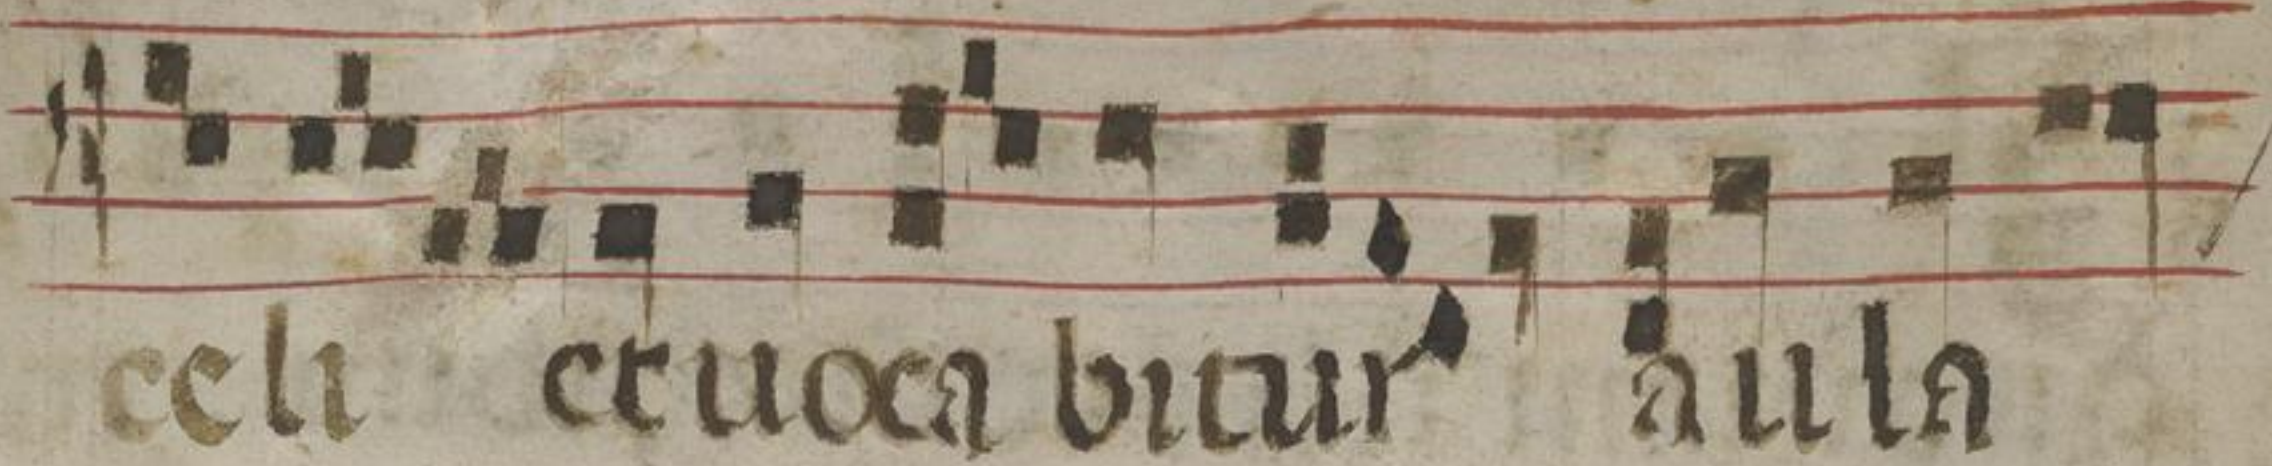 celi et uoca bitur aula